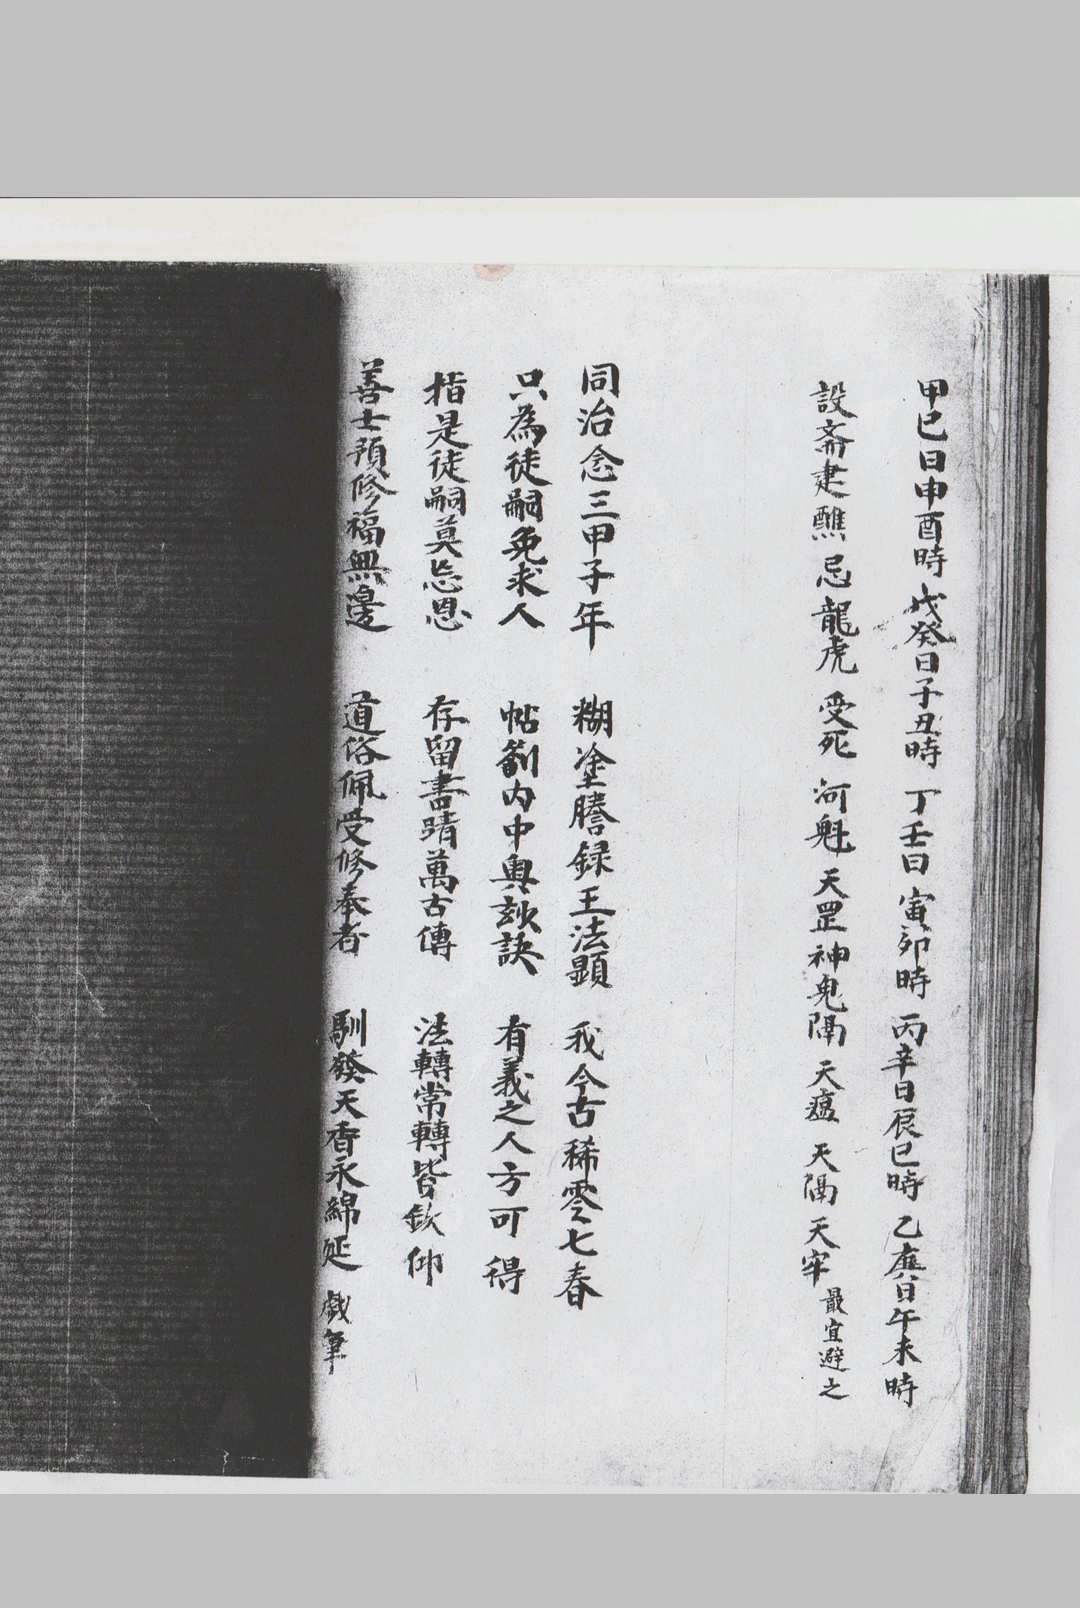 甲巳日申酉時 戊癸日子丑時 丁壬日寅卯時 丙辛日辰巳時 乙庚日午未時
設斋建醮 忌龍虎 受死 河魁 天罡 神鬼隔 天瘟 天隔 天牢 最宜避之
同治念三甲子年 糊塗謄録王法顕 我今古稀零七春
只為徒嗣免求人 帖劄内中奥玅訣 有義之人方可得
指是徒嗣莫忘恩 存留書蹟萬古傳 法轉常轉皆欽仰
善士預修福無邊 道俗佩受修奉者 馴發天香永綿延 戯筆